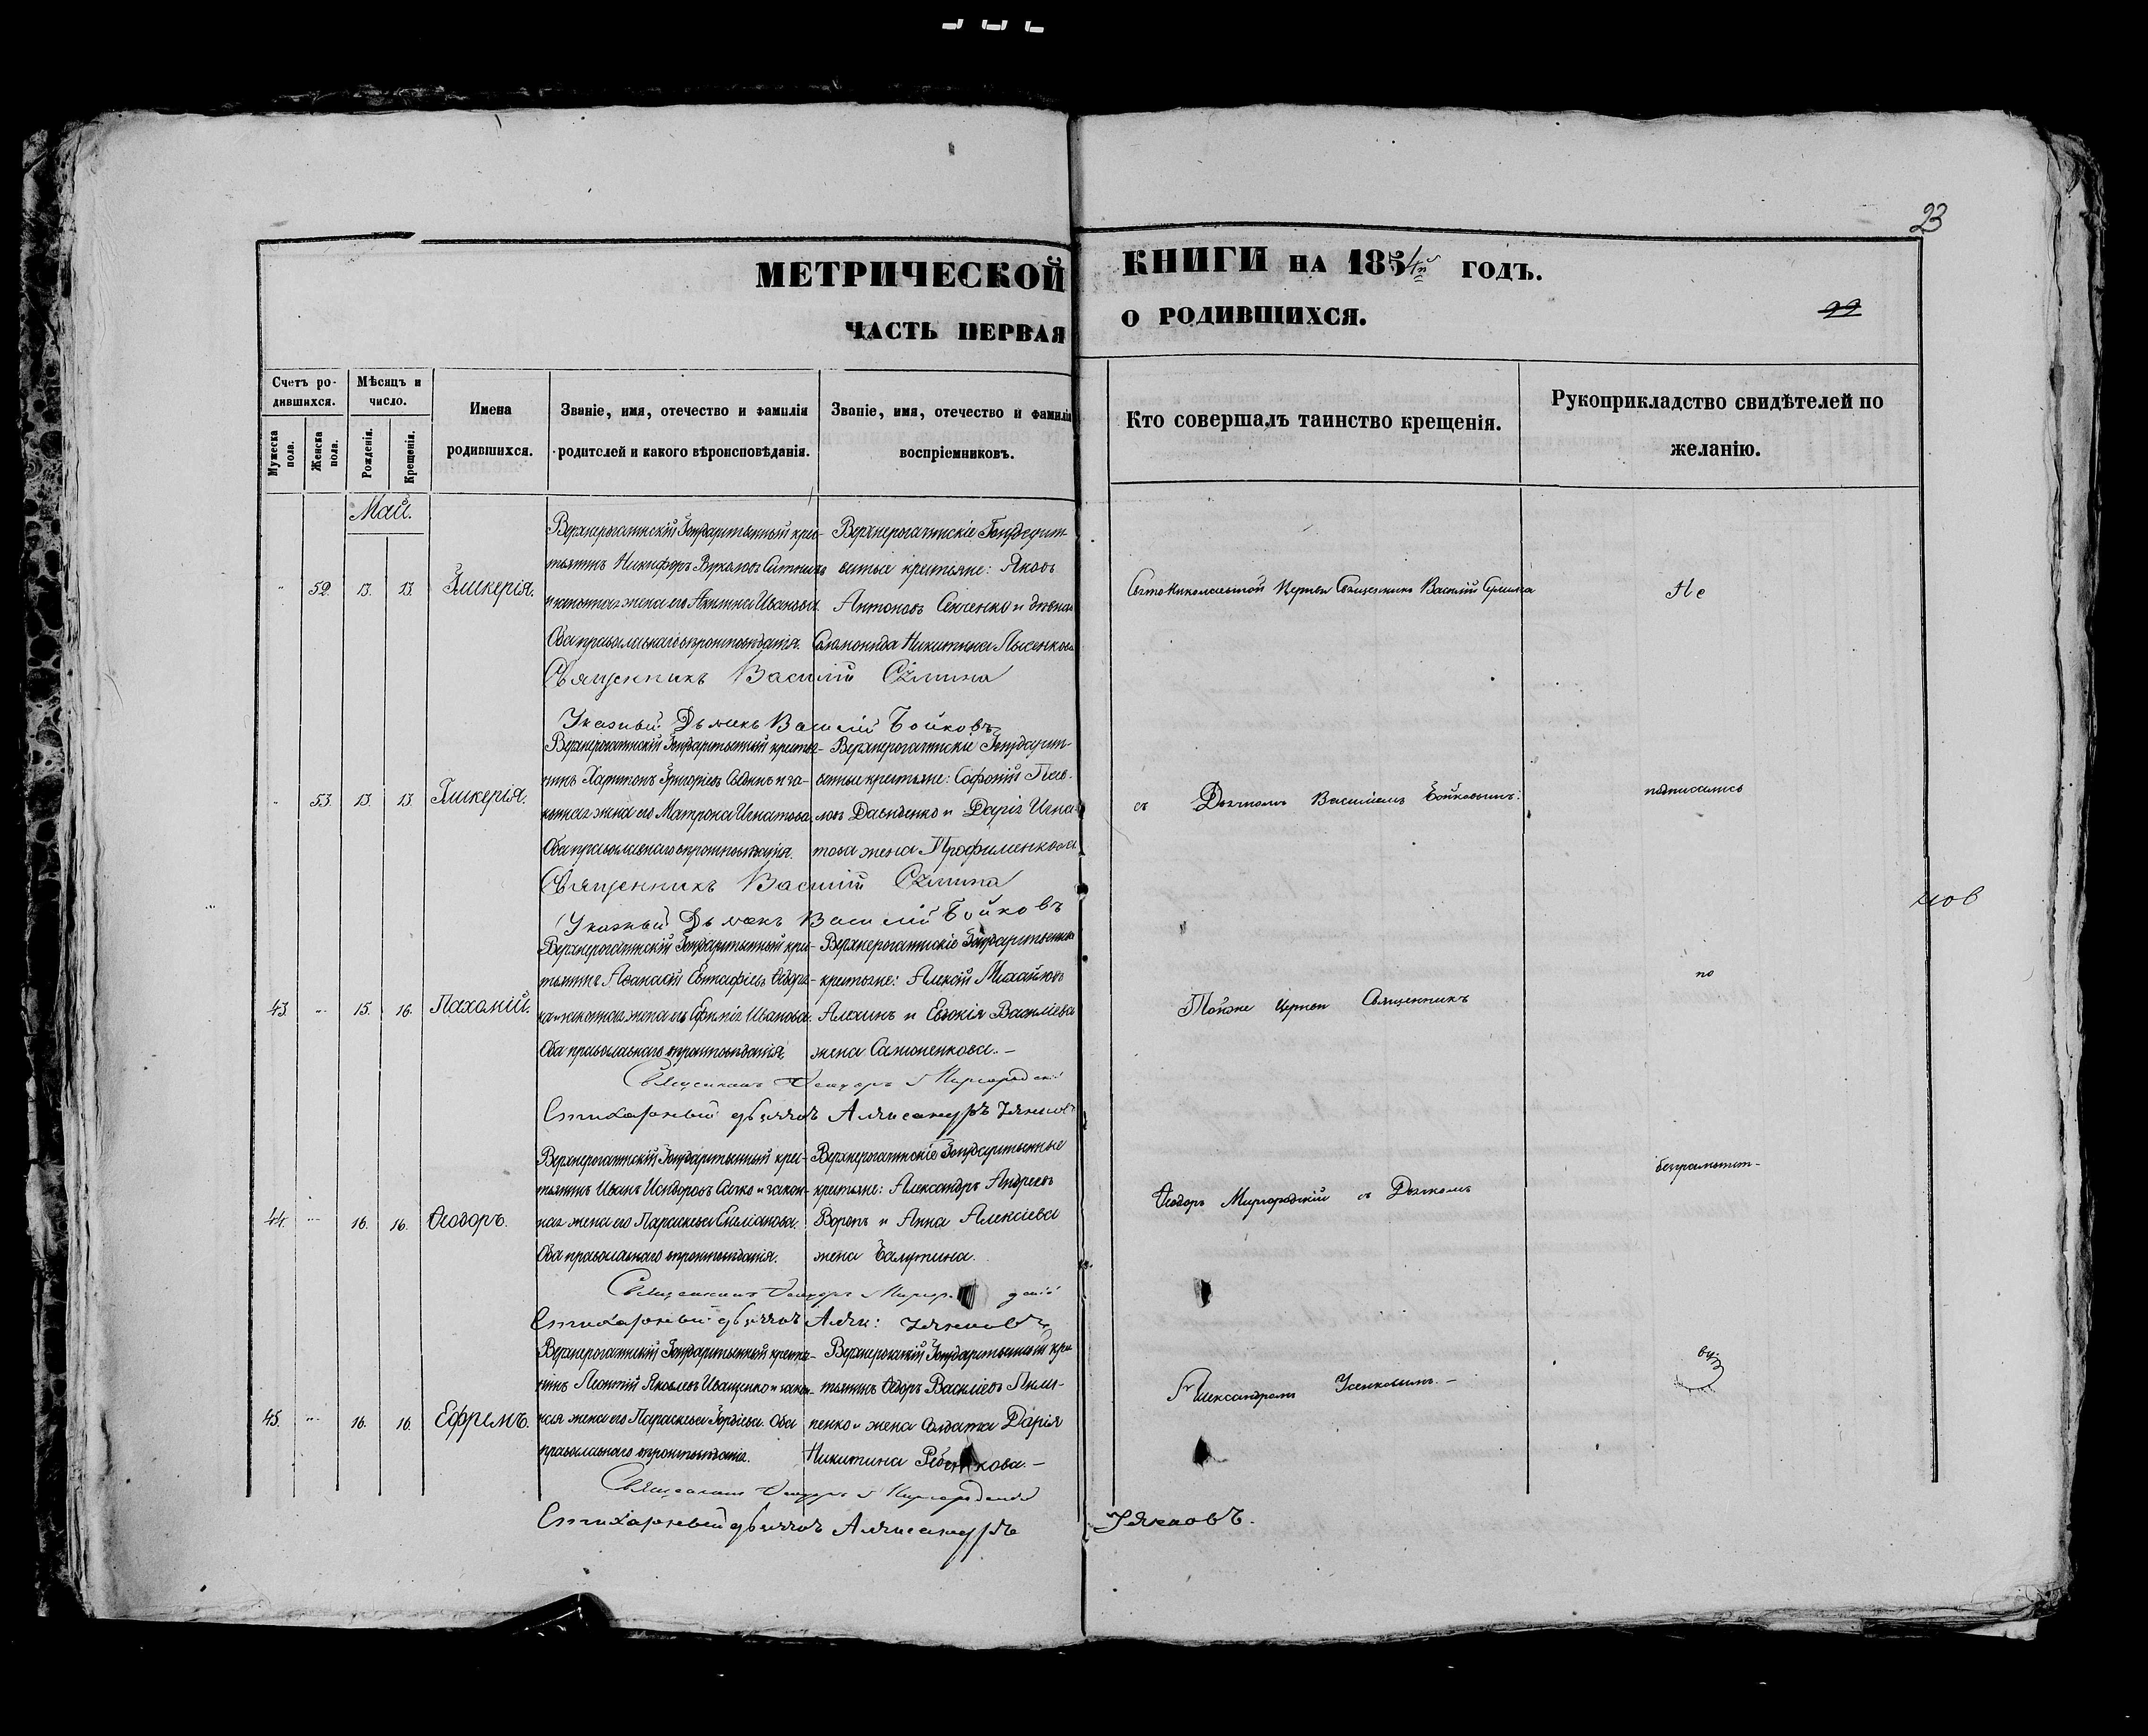 23
МЕТРИЧЕСКОЙ КНИГИ НА 1854й ГОДЪ.
ЧАСТЬ ПЕРВАЯ О РОДИВШИХСЯ.
22
Счетъ родившихся.
Мужеска пола.
Женска пола.
Мѣсяцъ и число.
Рожденія.
Крещенія.
Имена родившихся.
Званіе, имя, отечество и фамилія родителей и какого вѣроисповѣданія.
Званіе, имя, отечество и фамилія воспріемниковъ.
Кто совершалъ таинство крещенія.
Рукоприкладство свидѣтелей по желанію.
Май.
52 13. 13. Гликерія.
Верхнерогачинскій Государственный крес-
тьянинъ Никифоръ Вуколовъ
и законная жена его Акилина Иванова.
Оба православнаго вѣроисповѣданія.
Верхнерогачинскіе Государст-
венные крестьяне: Яковъ
Антоновъ Сенченко и дѣвица
Соломонида Никитина Лысенкова
Свято Николаевской Церкви Священникъ Василій
Не
Священникъ Василій
Указный Дьячекъ Василій Бойковъ
53. 13. 13. Гликерія.
Верхнерогачинскій Государственный крестья-
нинъ Харитонъ Григорьевъ и за-
конная жена его Матрона Игнатова.
Оба православнаго вѣроисповѣданія.
Верхнерогачинскіе Государст-
венные крестьяне: Софоній Пав-
ловъ Давиденко и Дарія Игна-
това жена Трофименкова
съ Дьячкомъ Василіемъ Бойковымъ.
подписались
Священникъ Василій
Указный Дьячекъ Василій Бойковъ
43. 15. 16. Пахомій.
Верхнерогачинскій Государственный крес-
тьянинъ Аѳанасій Евстафіевъ
и законная жена его Евфимія Иванова.
Оба православнаго вѣроисповѣданія.
Верхнерогачинскіе Государственные
крестьяне: Алексій Михайловъ
Алехинъ и Евдокія Василіева
жена Самоненкова.-
Тойже Церкви Священникъ
по
Священникъ Ѳеодоръ Миргородскій
Стихарный дьячокъ Александръ
44. 16. 16. Ѳеодоръ.
Верхнерогачинскій Государственный крес-
тьянинъ Иванъ Исидоровъ Сачко и закон-
ная жена его Параскева
Оба православнаго вѣроисповѣданія.
Верхнерогачинскіе Государственные
крестьяне: Александръ Андреевъ
Воронъ и Анна Алексіева
жена Балутина.
Ѳеодоръ Миргородскій съ Дьячкомъ
безграмотст-
Священникъ Ѳеодоръ
Стихарный дьячокъ Алек:
45. 16. 16. Ефремъ.
Верхнерогачинскій Государственный крестья-
нинъ Леонтій Яковлевъ Иващенко и закон-
ная жена его Параскева Гордіева. Оба
православнаго вѣроисповѣданія.
Верхнерогачинскій Государственный крес-
тьянинъ Ѳедоръ Василіевъ
пенко и жена Солдата Дарія
Никитина
Александромъ Усенковымъ.-
Священникъ Ѳеодоръ Миргородскій
Стихарный дьячокъ Александръ